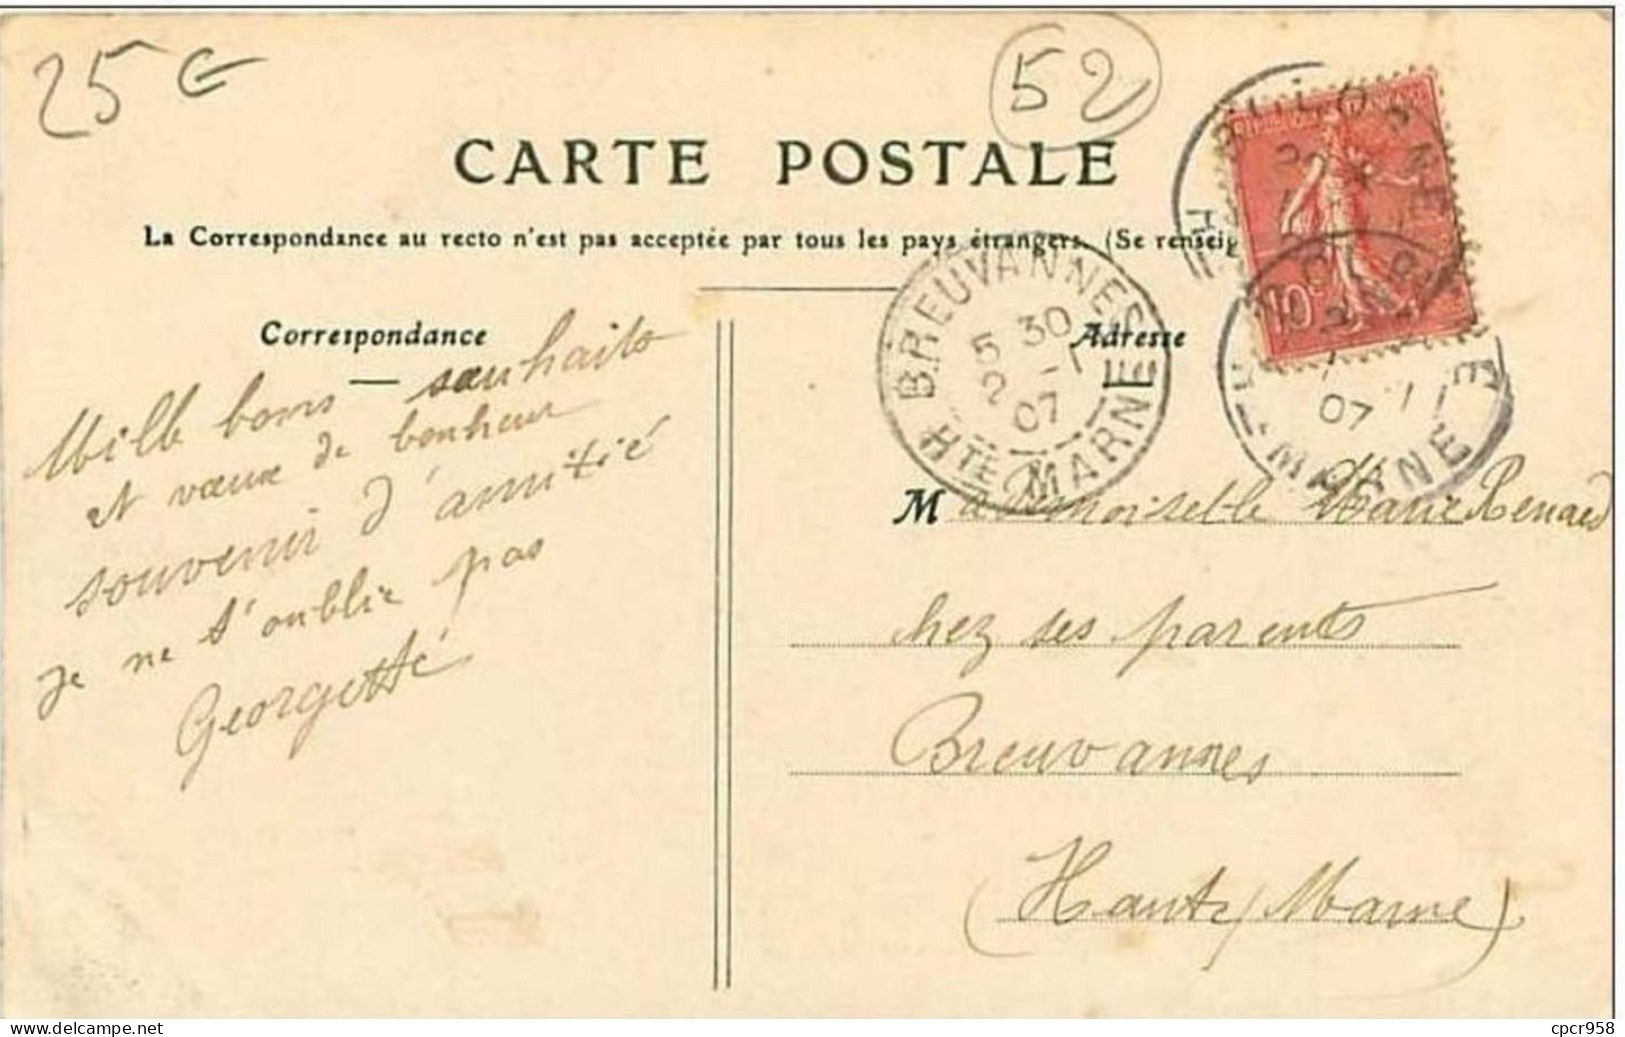 25 €
52
CARTE POSTALE
La Correspondance au recto n'est pas acceptée par tous les pays étrangers. (Se renseig
Correspondance
Adresse
Mille bons souhaits
et vœux de bonheur
souvenir d'amitié
je ne t'oublie pas
Georgette
BREUVANNES
5 30
2 -1
07
HTE MARNE
10
07
MARNE
Mademoiselle Marie Renard
chez ses parents
Breuvannes
(Haute Marne)
www.delcampe.net
cpcr958